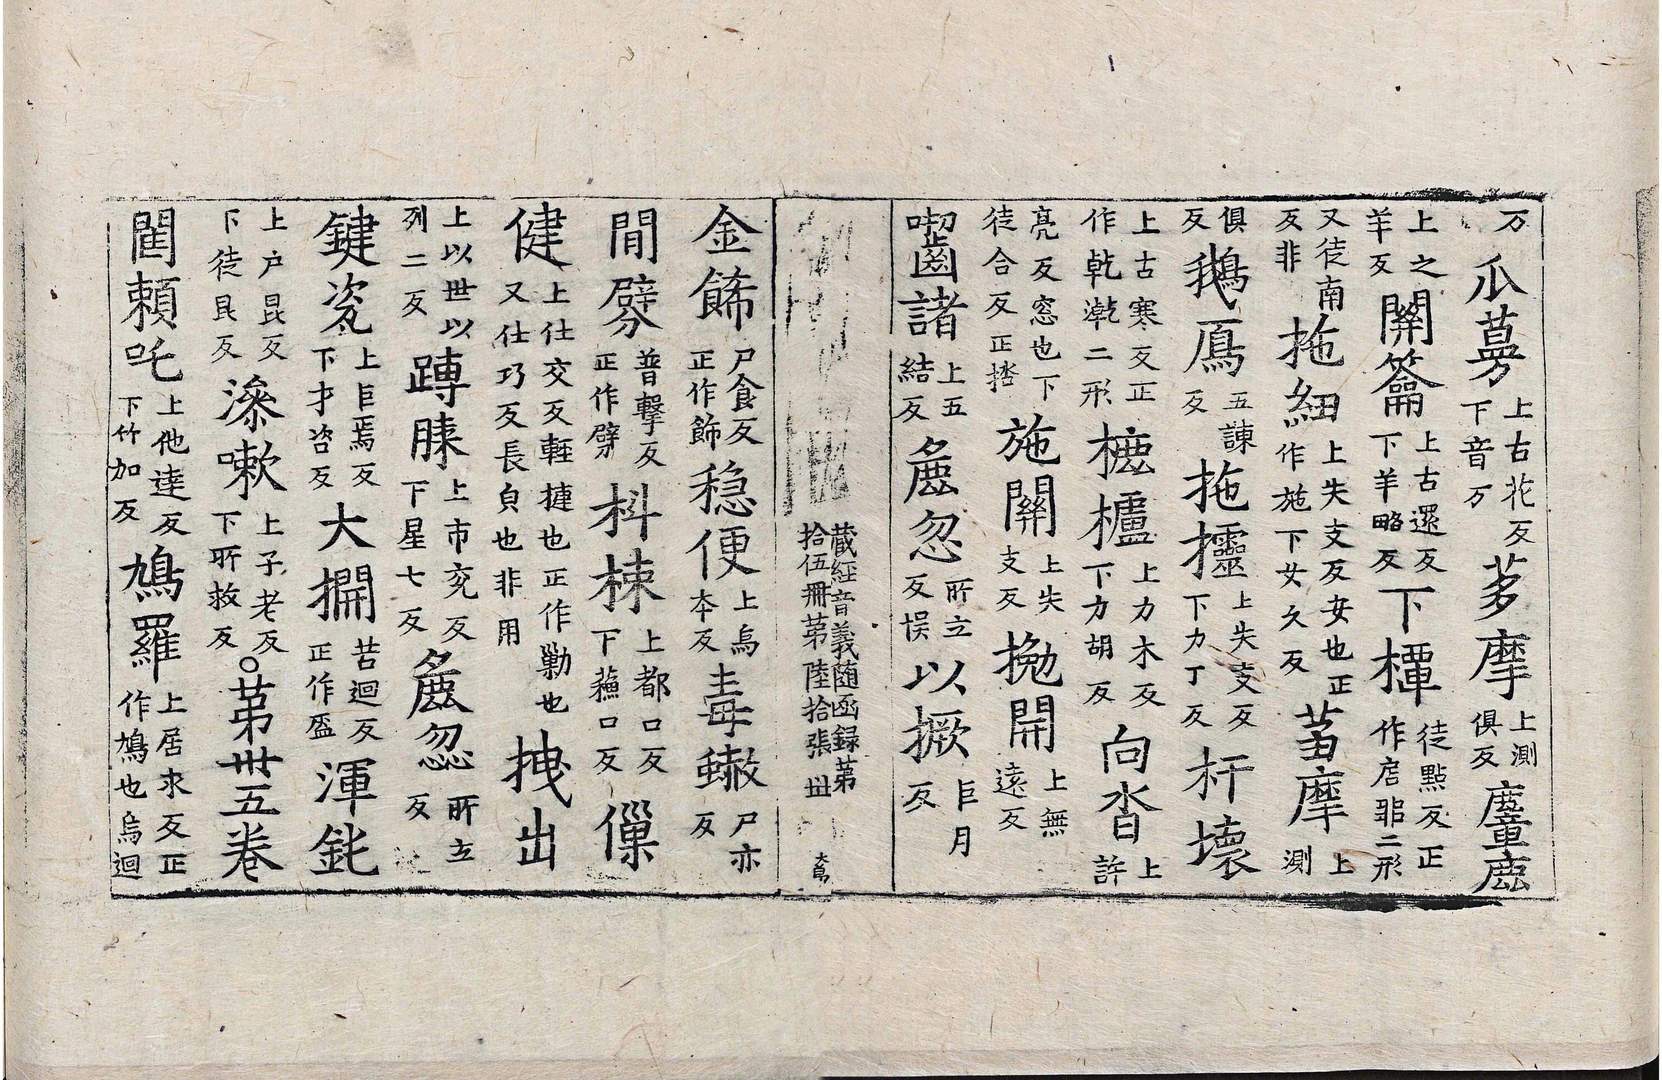 万瓜蔢上古花反下音万茤摩上測俱反麞鹿
上之羊反關籥上古還反下羊略反下橝徒點反正作扂㫋二形
又徒南反非拖紐上失支反安也正作施下女久反蒭摩上測
俱反鵝鴈五諫反拖𣟆上失支反下力丁反杆壞
上古寒反正作乹漧二形樚櫨上力木反下力胡反向沓上許
亮反窓也下徒合反正㳫施關上失支反㧥開上無遠反
囓齒諸上五結反麁忽所立反悮以橛巨月反
藏經音義随函録第拾伍冊第陸拾張 丗
金餙尸食反正作飾穏便上烏夲反毒𧓉尸亦反
閒劈普擊反正作劈枓栜上都口反下蘓口反傑
健上仕交反輕揵也正作勦也又仕巧反長皃也非用拽出
上以世以列二反蹲膝上市兖反下星七反麁忽所立反
鍵瓷上巨焉反下才咨反大𢹂苦迴反正作盔渾䤚
上戶昆反下徒昆反澡嗽上子老反下所救反○第丗五卷
闥頼吒上他達反下竹加反鳩羅上居求反正作鳩也烏迴